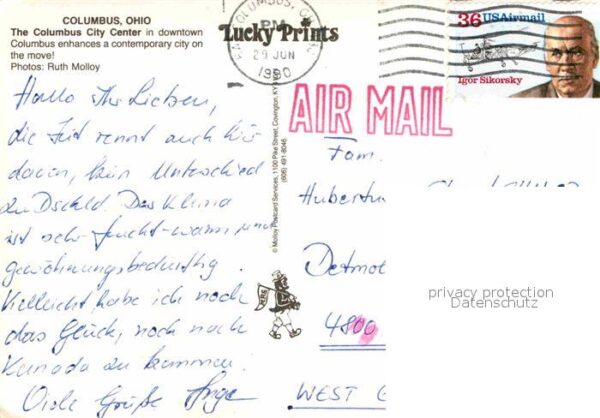 COLUMBUS, OHIO
The Columbus City Center in downtown
Columbus enhances a contemporary city on
the move!
Photos: Ruth Molloy
Hallo Ihr Lieben,
die Zeit rennt auch hier
davon, kein Unterschied
zu Dschld. Das Klima
ist sehr feucht-warm und
gewöhnungsbedürftig.
Vielleicht habe ich noch
das Glück, noch nach
Kanada zu kommen.
Viele Grüße Inge
Lucky Prints
COLUMBUS,
PM
29 JUN
1990
36 USAirmail
Igor Sikorsky
AIR MAIL
© Molloy Postcard Services, 1100 Pike Street, Covington, KY
(606) 491-8046
Fam.
Hubertu
Detmol
4800
WEST G
privacy protection
Datenschutz